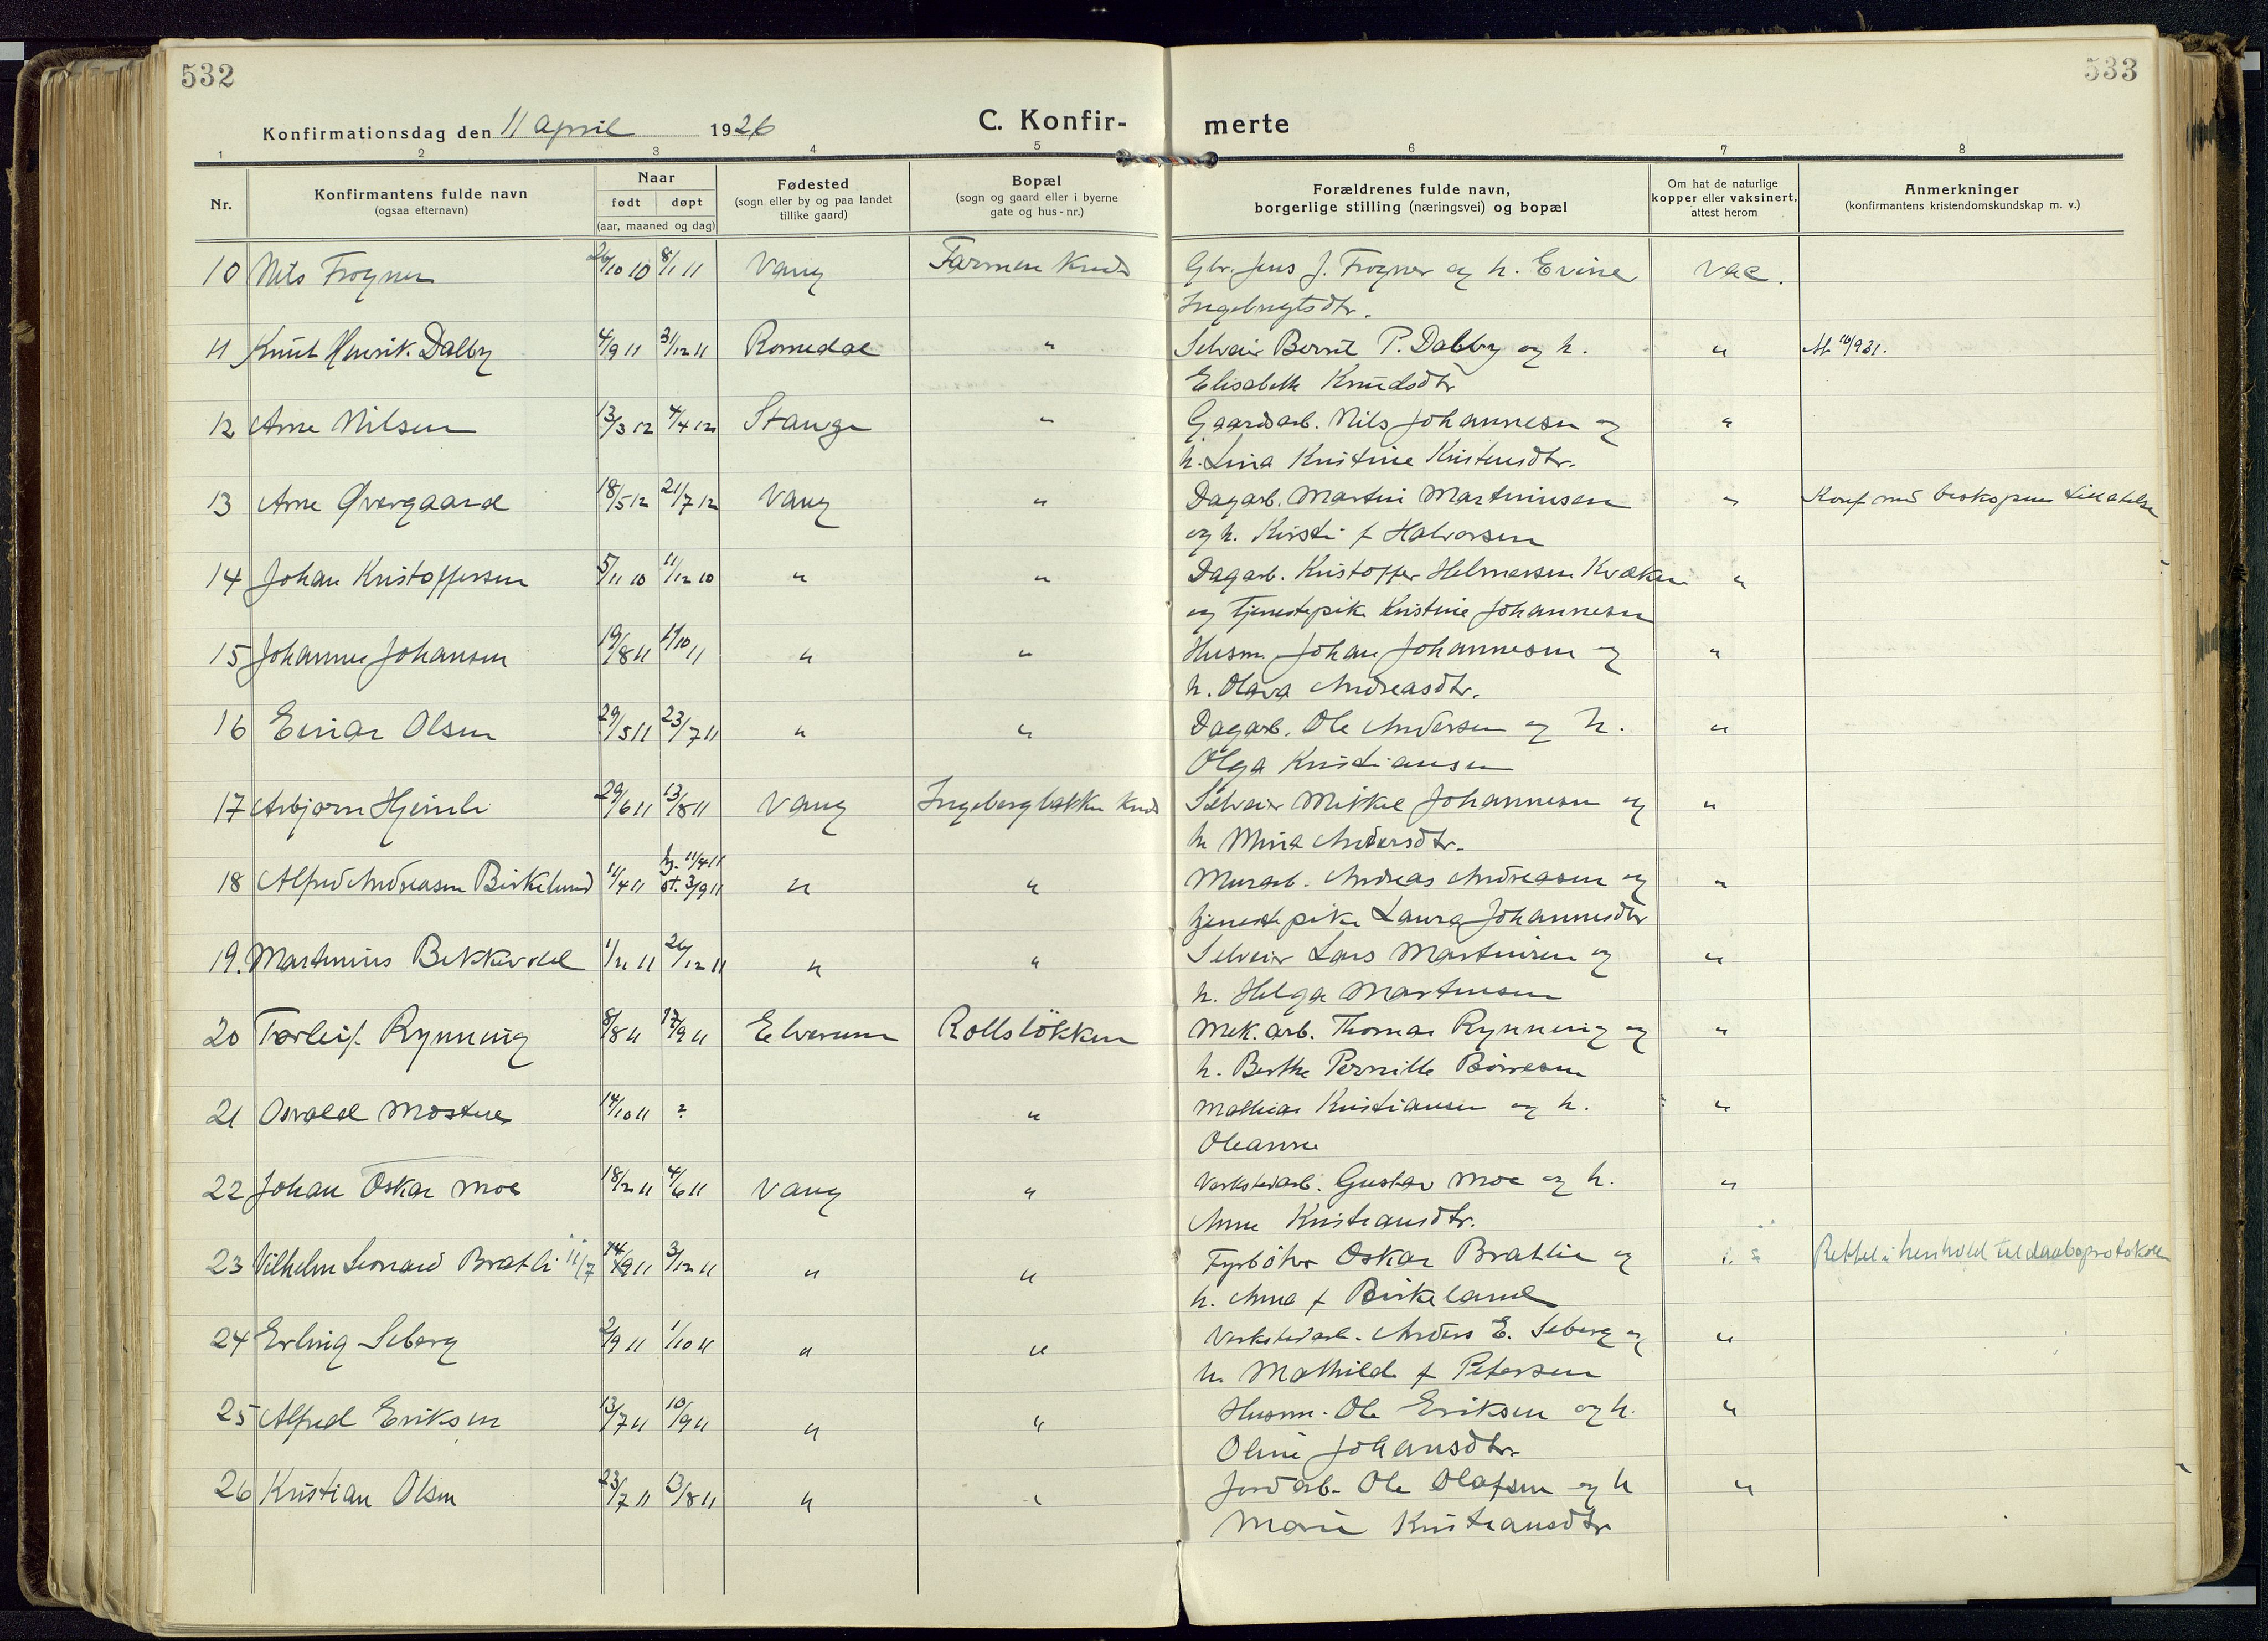 532
533
Konfirmationsdag den 11 april 1926
C. Konfir-
merte
1 2 3 4 5 6 7 8
Nr.
Konfirmantens fulde navn
(ogsaa efternavn)
Naar
født døpt
(aar, maaned og dag)
Fødested
(sogn eller by og paa landet
tillike gaard)
Bopæl
(sogn og gaard eller i byerne
gate og hus-nr.)
Forældrenes fulde navn,
borgerlige stilling (næringsvei) og bopæl
Om hat de naturlige
kopper eller vaksinert,
attest herom
Anmerkninger
(konfirmantens kristendomskundskap m. v.)
10 Nils Frogner 26/10 10 8/1 11 Vang Farmen Gbr. Jens J. Frogner og h. Evine vac.
Ingebrigtsdtr.
11 Knut Henrik Dalby 4/9 11 31/12 11 Romedal " Selveier Bernt P. Dalby og h. " At 10/9 31.
Elisabeth Knudsdtr
12 Arne Nilsen 13/3 12 4/4 12 Stange " Gaardsarb. Nils Johannesen og "
h. Lina Kristine Kristensdtr.
13 Arne Øvergaard 18/5 12 21/7 12 Vang " Dagarb. Martin Martinusen " Konf med biskopens tillatelse
og h. Kirsti f Halvorsen
14 Johan Kristoffersen 5/11 10 11/12 10 " " Dagarb. Kristoffer Helmersen Kvæken "
og tjenestepike Kristine Johannesen
15 Johannes Johansen 19/8 11 1/10 11 " " Husm. Johan Johannesen og "
h. Olava Andreasdtr.
16 Einar Olsen 29/5 11 23/7 11 " " Dagarb. Ole Andersen og h. "
Olga Kristiansen
17 Asbjørn Hjemli 29/6 11 13/8 11 Vang Ingebergbakken Selveier Mikkel Johannesen og "
h Mina Andersdtr.
18 Alfred Andreasen Birkelund 11/4 11 hj. 11/4 11 st. 3/9 11 " " Murarb. Andreas Andreasen og "
tjenestepike Laura Johannesdtr
19. Martinius Bekkevold 1/11 11 26/12 11 " " Selveier Lars Martinsen og "
h. Helga Martinsen
20 Torleif Rynning 8/8 11 17/9 11 Elverum Rollsløkken Mek. arb. Thomas Rynning og "
h. Berthe Pernille Børresen
21 Osvald Mostue 14/10 11 ? " Mathias Kristiansen og h. "
Oleanne
22 Johan Oskar Moe 18/2 11 4/6 11 Vang " Verkstedarb. Gustav Moe og h. "
Anne Kristiansdtr.
23 Vilhelm Leonard Bratli 11/7 14/9 11 3/12 11 " " Fyrbøter Oskar Brathlie og " Rettet i henhold til daabsprotokoll
h. Anna f Birkeland
24 Erling Seberg 2/9 11 1/10 11 " " Verkstedarb. Anders E. Seberg og "
h. Mathilde f Petersen
25 Alfred Eriksen 13/7 11 10/9 11 " " Husm. Ole Eriksen og h. "
Oline Johansdtr.
26 Kristian Olsen 23/7 11 13/8 11 " " Jordarb. Ole Olafsen og h "
Marie Kristiansdtr